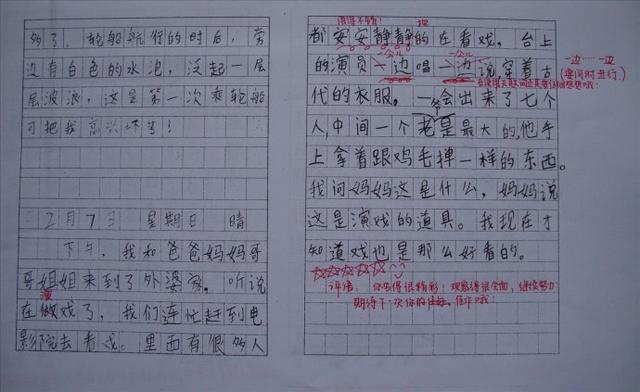 多了，轮船航行的时后，旁
边有白色的水泡，泛起一层
层波浪，这是第一次乘轮船
可把我高兴坏了！
二月7日 星期日 晴
下午，我和爸爸妈妈哥
哥姐姐来到了外婆家。听说
在做戏了，我们连忙赶到电
演
影院去看戏。里面有很多人
用得不错！
都安安静静的在看戏，台上
地
的演员一边唱一边说穿着古
一边…一边
(要同时进行)
代的衣服。一会出来了七个
人,中间一个老是最大的,他手
上拿着跟鸡毛掸一样的东西。
我问妈妈这是什么，妈妈说
这是演戏的道具。我现在才
知道戏也是那么好看的。
评语：你写得很精彩！观察得很全面，继续努力
期待下一次你的佳作哦！